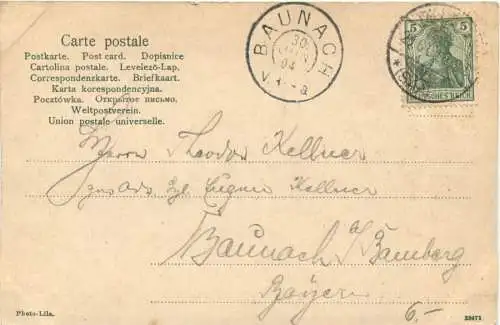 Carte postale
Postkarte. Post card. Dopisnice
Cartolina postale. Levelező-Lap.
Correspondenzkarte. Briefkaart.
Karta korespondencyjna.
Pocztówka. Открытое письмо.
Weltpostverein.
Union postale universelle.
BAUNACH
30
04
5
5
REICH
Herrn Theodor Kellner
Eugen Kellner
Baunach a/ Bamberg
Bayern
6-
Photo-Lila.